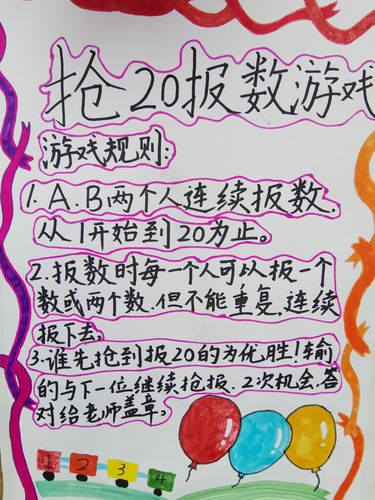 抢20报数游戏
游戏规则:
1.A.B两个人连续报数.
从1开始到20为止。
2.报数时每一个人可以报一个
数或两个数.但不能重复,连续
报下去,
3.谁先抢到报20的为优胜!输
的与下一位继续抢报.2次机会.答
对给老师盖章。
1 2 3 4